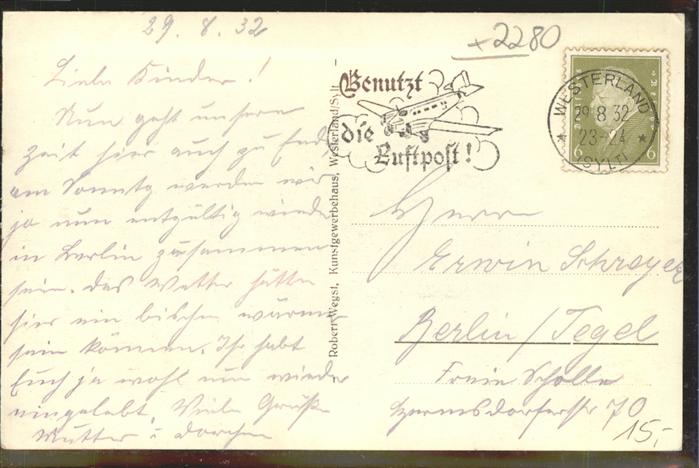 29. 8. 32
Liebe Kinder!
Nun geht unsere
Zeit hier auch zu End
am Sonntg werden wir
ja nun entgültig wieder
in Berlin zusammen
sein. Das Wetter hätte
hier ein bischen wärmer
sein können. Ihr habt
Euch ja wohl nun wieder
eingelebt. Viele Grüße
Mutter u Dorchen
Robert Wegst, Kunstgewerbehaus, Westerland/Sylt
+2280
Benutzt
die
Luftpost!
WESTERLAND
29.8.32
23-24
* (SYLT) *
6 6
Herrn
Erwin Schreyer
Berlin/Tegel
Freie Scholle
Hermsdorferstr 70
15,-